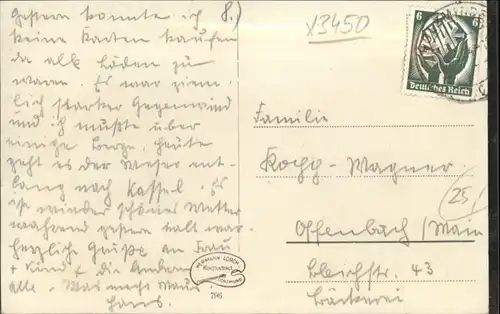 Gestern konnte ich 8.)
keine Karten kaufen
da alle Läden zu
waren. Es war ziem-
lich starker Gegenwind
und ich mußte über
einige Berge. Heute
geht es der Weser ent-
lang nach Kassel. Es
ist wieder schönes Wetter
während gestern kalt war.
Herzliche Grüße an Frau
+ Kind & die Andern
alle. Was macht
Hans.
X3450
6 6
Deutsches Reich
Familie
Kopp-Wagner
25
Offenbach/Main
Bleichstr. 43
Bäckerei
HERMANN LORCH
KUNSTANSTALT
DORTMUND